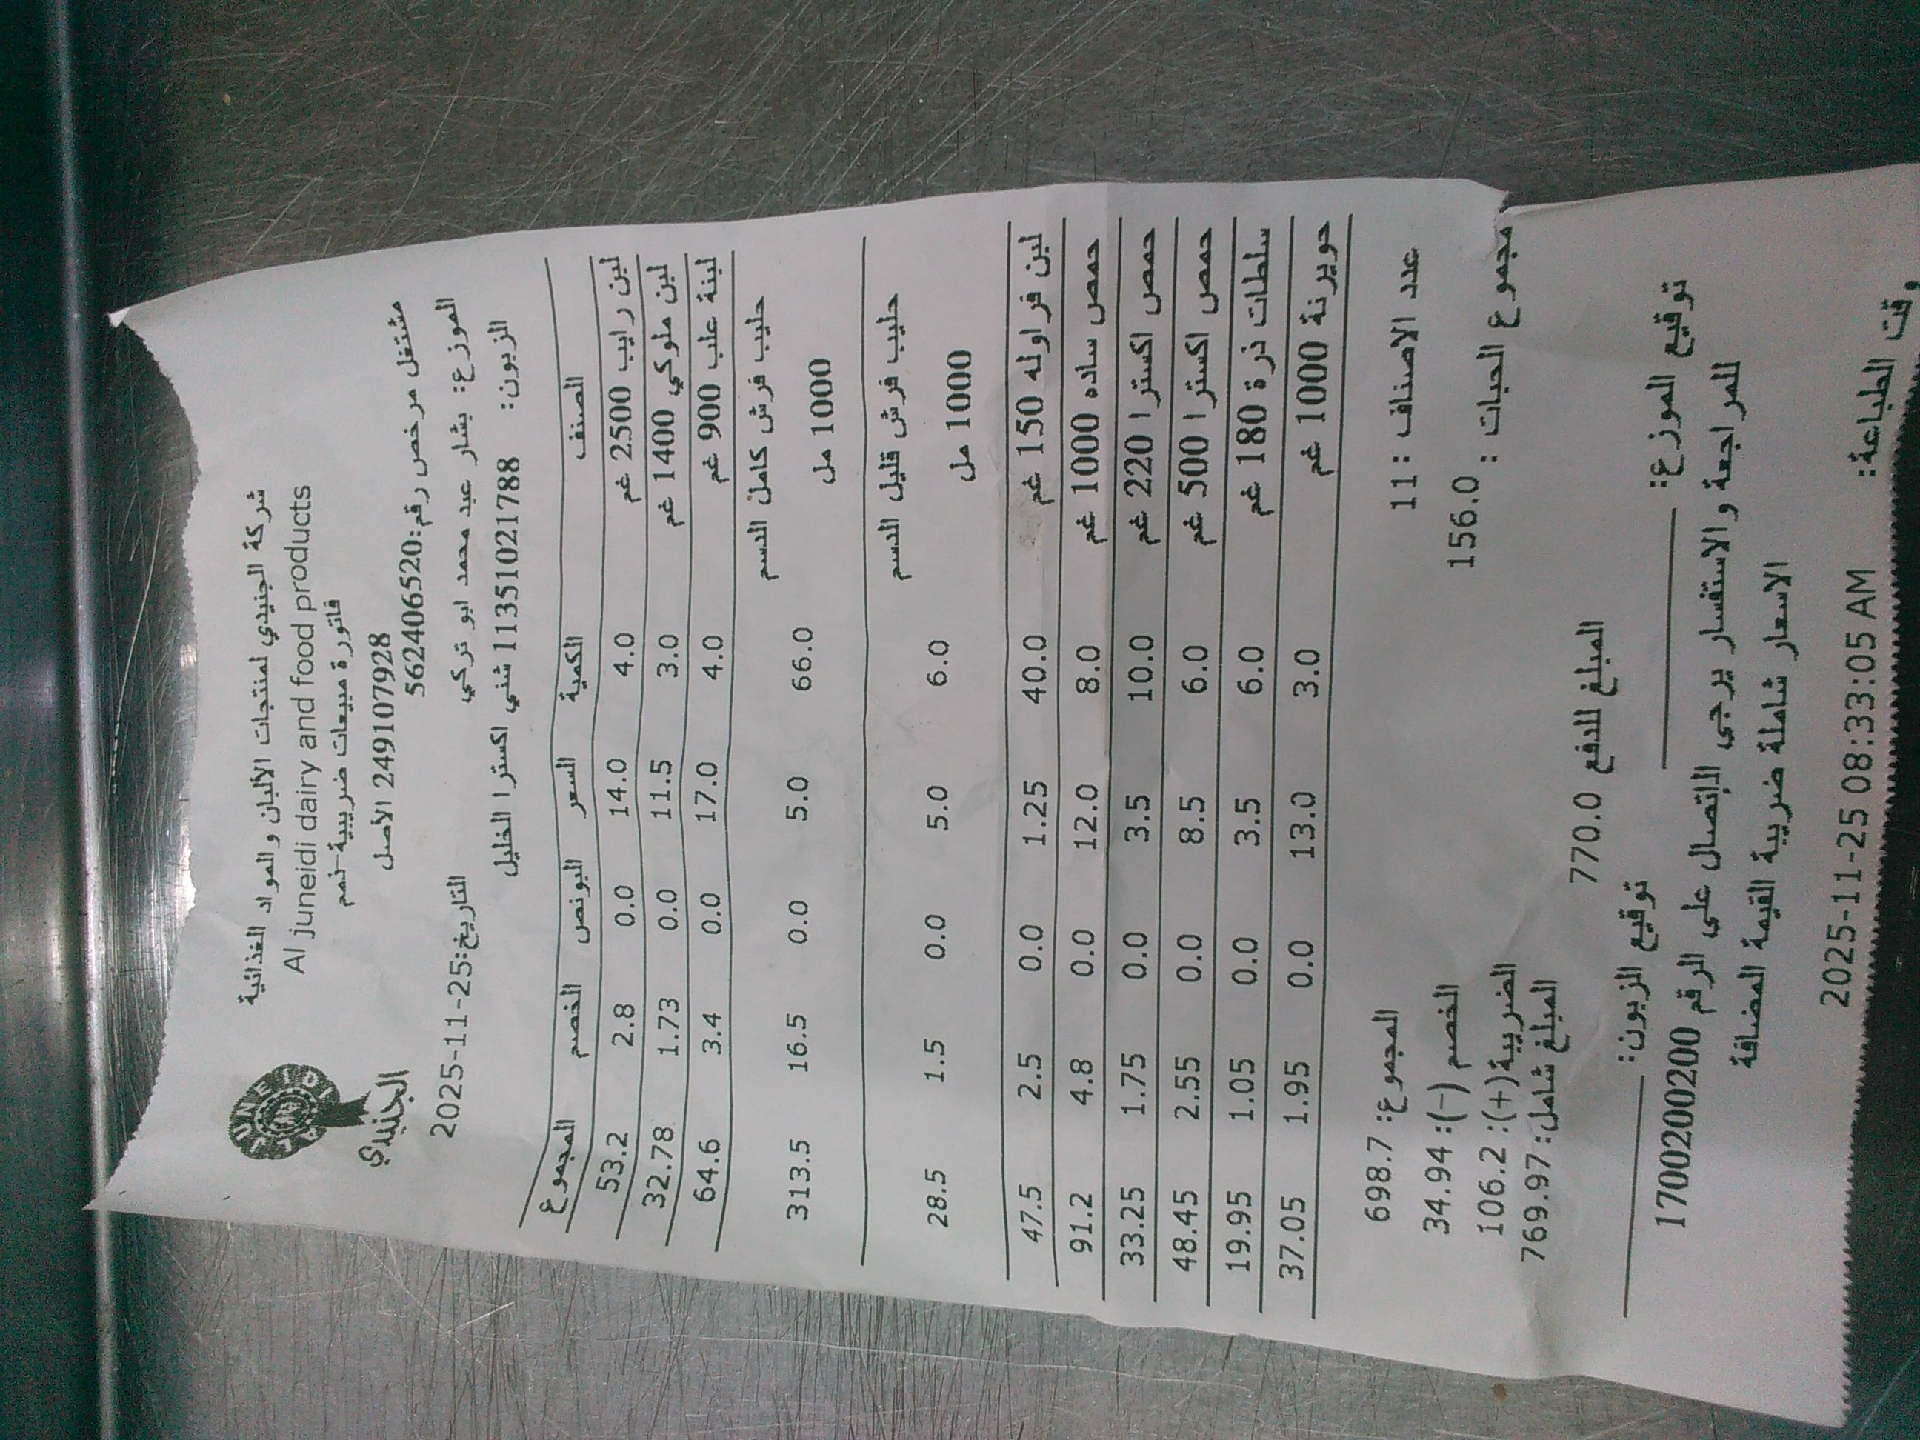 شركة الجنيدي لمنتجات الألبان والمواد الغذائية
Al juneidi dairy and food products
فاتورة مبيعات ضريبية-نعم
JUNEIDI
الجنيدي
249107928 الأصل
مشتغل مرخص رقم:562406520
الموزع: بشار عبد محمد ابو تركي
التاريخ:25-11-2025
الزبون: 11351021788 شني اكسترا الخليل
الصنف الكمية السعر البونص الخصم المجموع
لبن رايب 2500 غم 4.0 14.0 0.0 2.8 53.2
لبن ملوكي 1400 غم 3.0 11.5 0.0 1.73 32.78
لبنة علب 900 غم 4.0 17.0 0.0 3.4 64.6
حليب فرش كامل الدسم
1000 مل 66.0 5.0 0.0 16.5 313.5
حليب فرش قليل الدسم
1000 مل 6.0 5.0 0.0 1.5 28.5
لبن فراوله 150 غم 40.0 1.25 0.0 2.5 47.5
حمص ساده 1000 غم 8.0 12.0 0.0 4.8 91.2
حمص اكسترا 220 غم 10.0 3.5 0.0 1.75 33.25
حمص اكسترا 500 غم 6.0 8.5 0.0 2.55 48.45
سلطات ذرة 180 غم 6.0 3.5 0.0 1.05 19.95
حويرنة 1000 غم 3.0 13.0 0.0 1.95 37.05
عدد الاصناف : 11
المجموع: 698.7
مجموع الحبات : 156.0
الخصم (-): 34.94
الضريبة(+): 106.2
المبلغ شامل: 769.97
المبلغ للدفع 770.0
توقيع الموزع:
توقيع الزبون:
للمراجعة والاستفسار يرجى الإتصال على الرقم 1700200200
الاسعار شاملة ضريبة القيمة المضافة
وقت الطباعة: 2025-11-25 08:33:05 AM